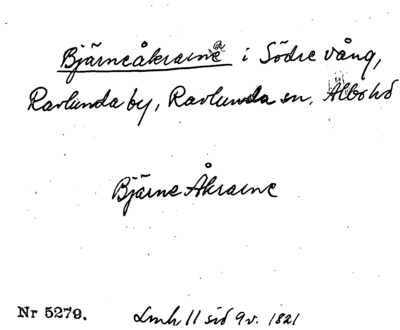 Bjärneåkrarne i Södre vång,
Ravlunda by, Ravlunda sn, Albo hd
Bjärne Åkrarne
Nr 5279. Lmh 11 sid 9v. 1821